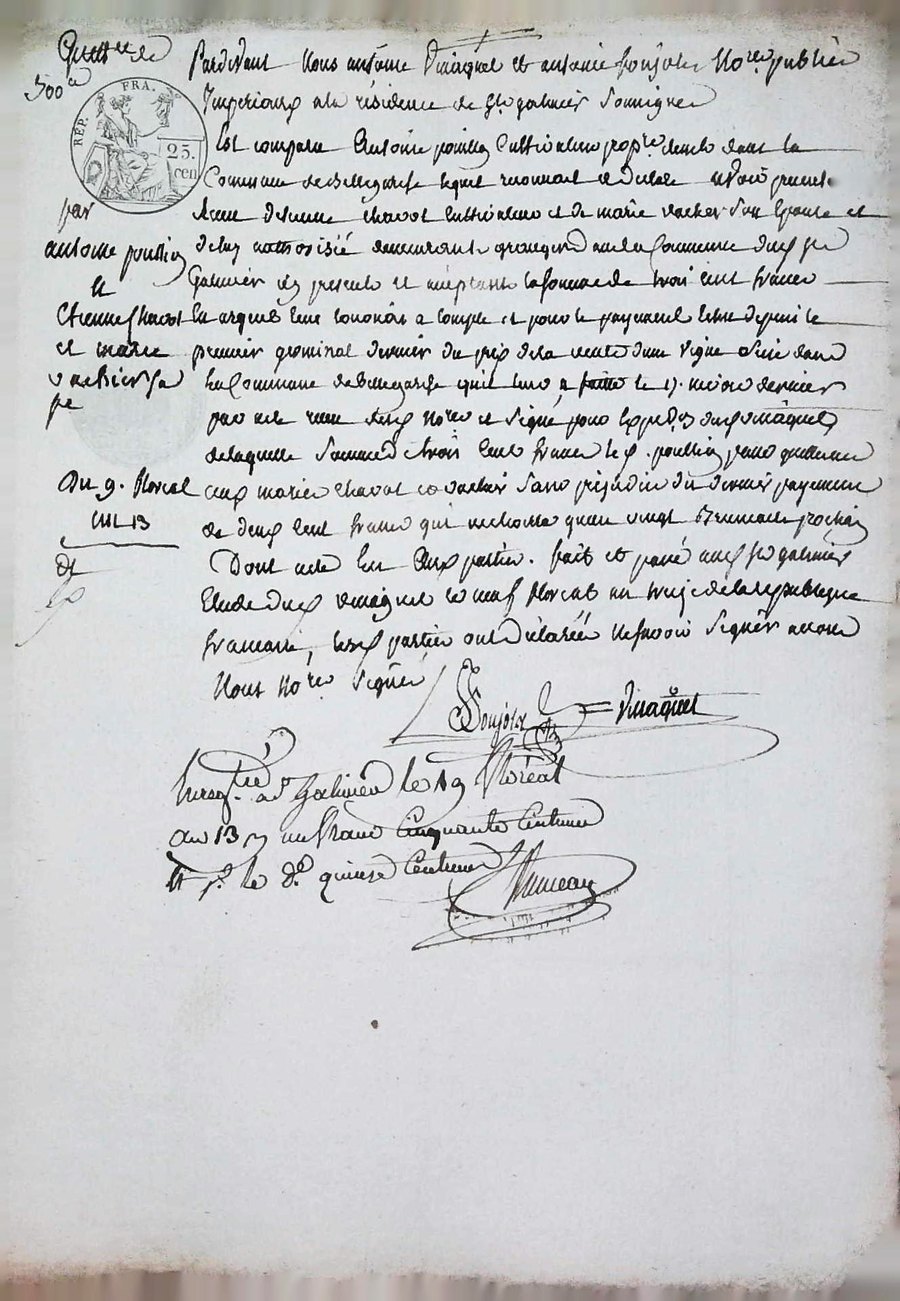 Quittance de
300
RÉP. FRA.
25.
cen
par
antoine poullin
et
Etienne Chavot
et marie
vachier sa
Du 9. floreal
an 13
Pardevant Nous antoine Vinaquet et antoine Nores publics
Imperiaux a la résidence de St galmier Soussignés
Est comparu Antoine Cultivateur propre demt dans la
Commune de Bellegarde lequel reconnait et declare avoir
Etienne chavot Cultivateur et de marie vacher Son Epouse et
de luy authorisée demeurants en la Commune dud St
Galmier icy presents et acceptants la somme de trois cent francs
a compte et pour le payement Echu depuis le
premier germinal dernier du prix de la vente d'une vigne Scize dans
la Commune de Bellegarde qu'il leur a faitte le 17. nivose dernier
par acte reçu et Signé pour Expedon dud Vinaquet
de laquelle Somme de trois Cent francs led. poullin passe quittance
aux mariés Chavot et vachier Sans prejudice du dernier payement
de deux Cent francs qui vingt Brumaire prochain
Dont acte aux parties. fait et passé aud St galmier
Etude dud Vinaquet le neuf floreal an treize de la republique
francaise, lesd parties ont déclarée ne Savoir Signer
Nous Nores Signé
Vinaquet
a St Galmier le 19 floréal
an 13 un franc Cinquante Centimes
et pr le De quinze Centimes